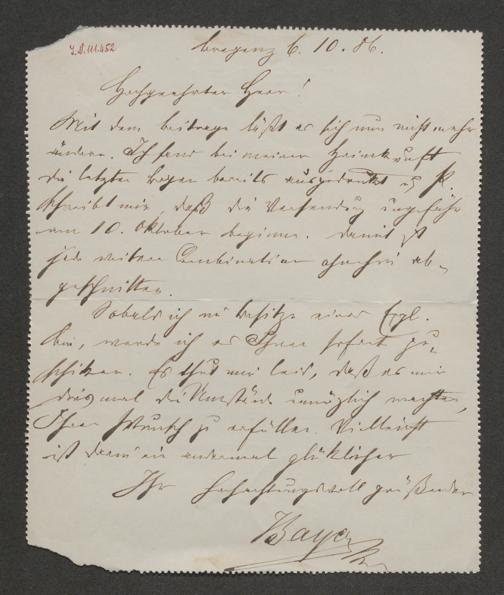 I.N. 111.452
Bregenz 6. 10. 86.
Hochgeehrter Herr!
Mit dem Beitrage läßt es sich nun nicht mehr
ändern. Ich fand bei meiner Heimkunft
die letzten Bogen bereits ausgedruckt u. P.
schreibt mir, daß die Versendung ungefähr
am 10. Oktober beginne. Damit ist
jede weitere Combination ohnehin ab-
geschnitten.
Sobald ich im Besitze eines Expl.
bin, werde ich es Ihnen sofort zu-
schicken. Es thut mir leid, daß es mir
diesmal die Umstände unmöglich machten,
Ihren Wunsch zu erfüllen. Vielleicht
ist ein andermal glücklicher
Ihr hochachtungsvoll grüßender
Bayer